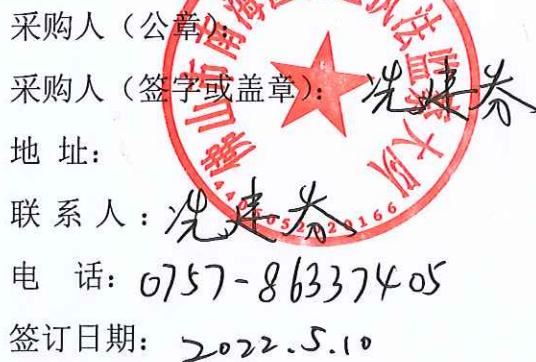 采购人（公章）:
采购人（签字或盖章）: 冼建芬
地 址:
联 系 人: 冼建芬
电 话: 0757-86337405
签订日期: 2022.5.10